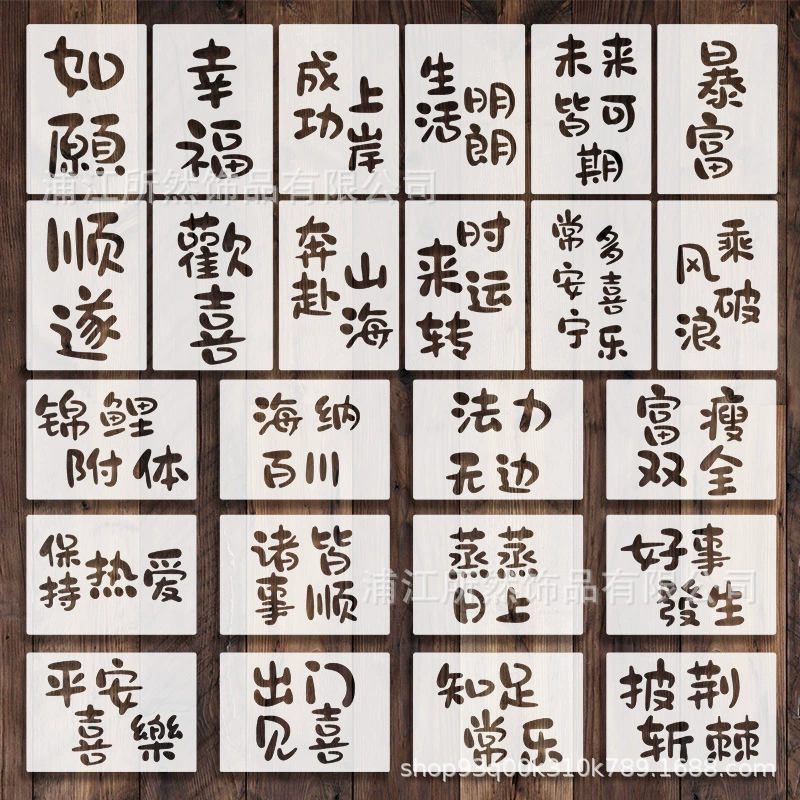 如
願
幸
福
成
功
上
岸
生
活
明
朗
未来
皆可
期
暴
富
浦江所然饰品有限公司
顺
遂
歡
喜
奔
赴
山
海
时
来运
转
常
安
宁
多
喜
乐
乘
风破
浪
锦鲤
附体
海纳
百川
法力
无边
富瘦
双全
保
持热爱
诸皆
事顺
蒸蒸
日上
好事
發生
浦江所然饰品有限公司
平安
喜樂
出门
见喜
知足
常乐
披荆
斩棘
shop93q00k310k789.1688.com